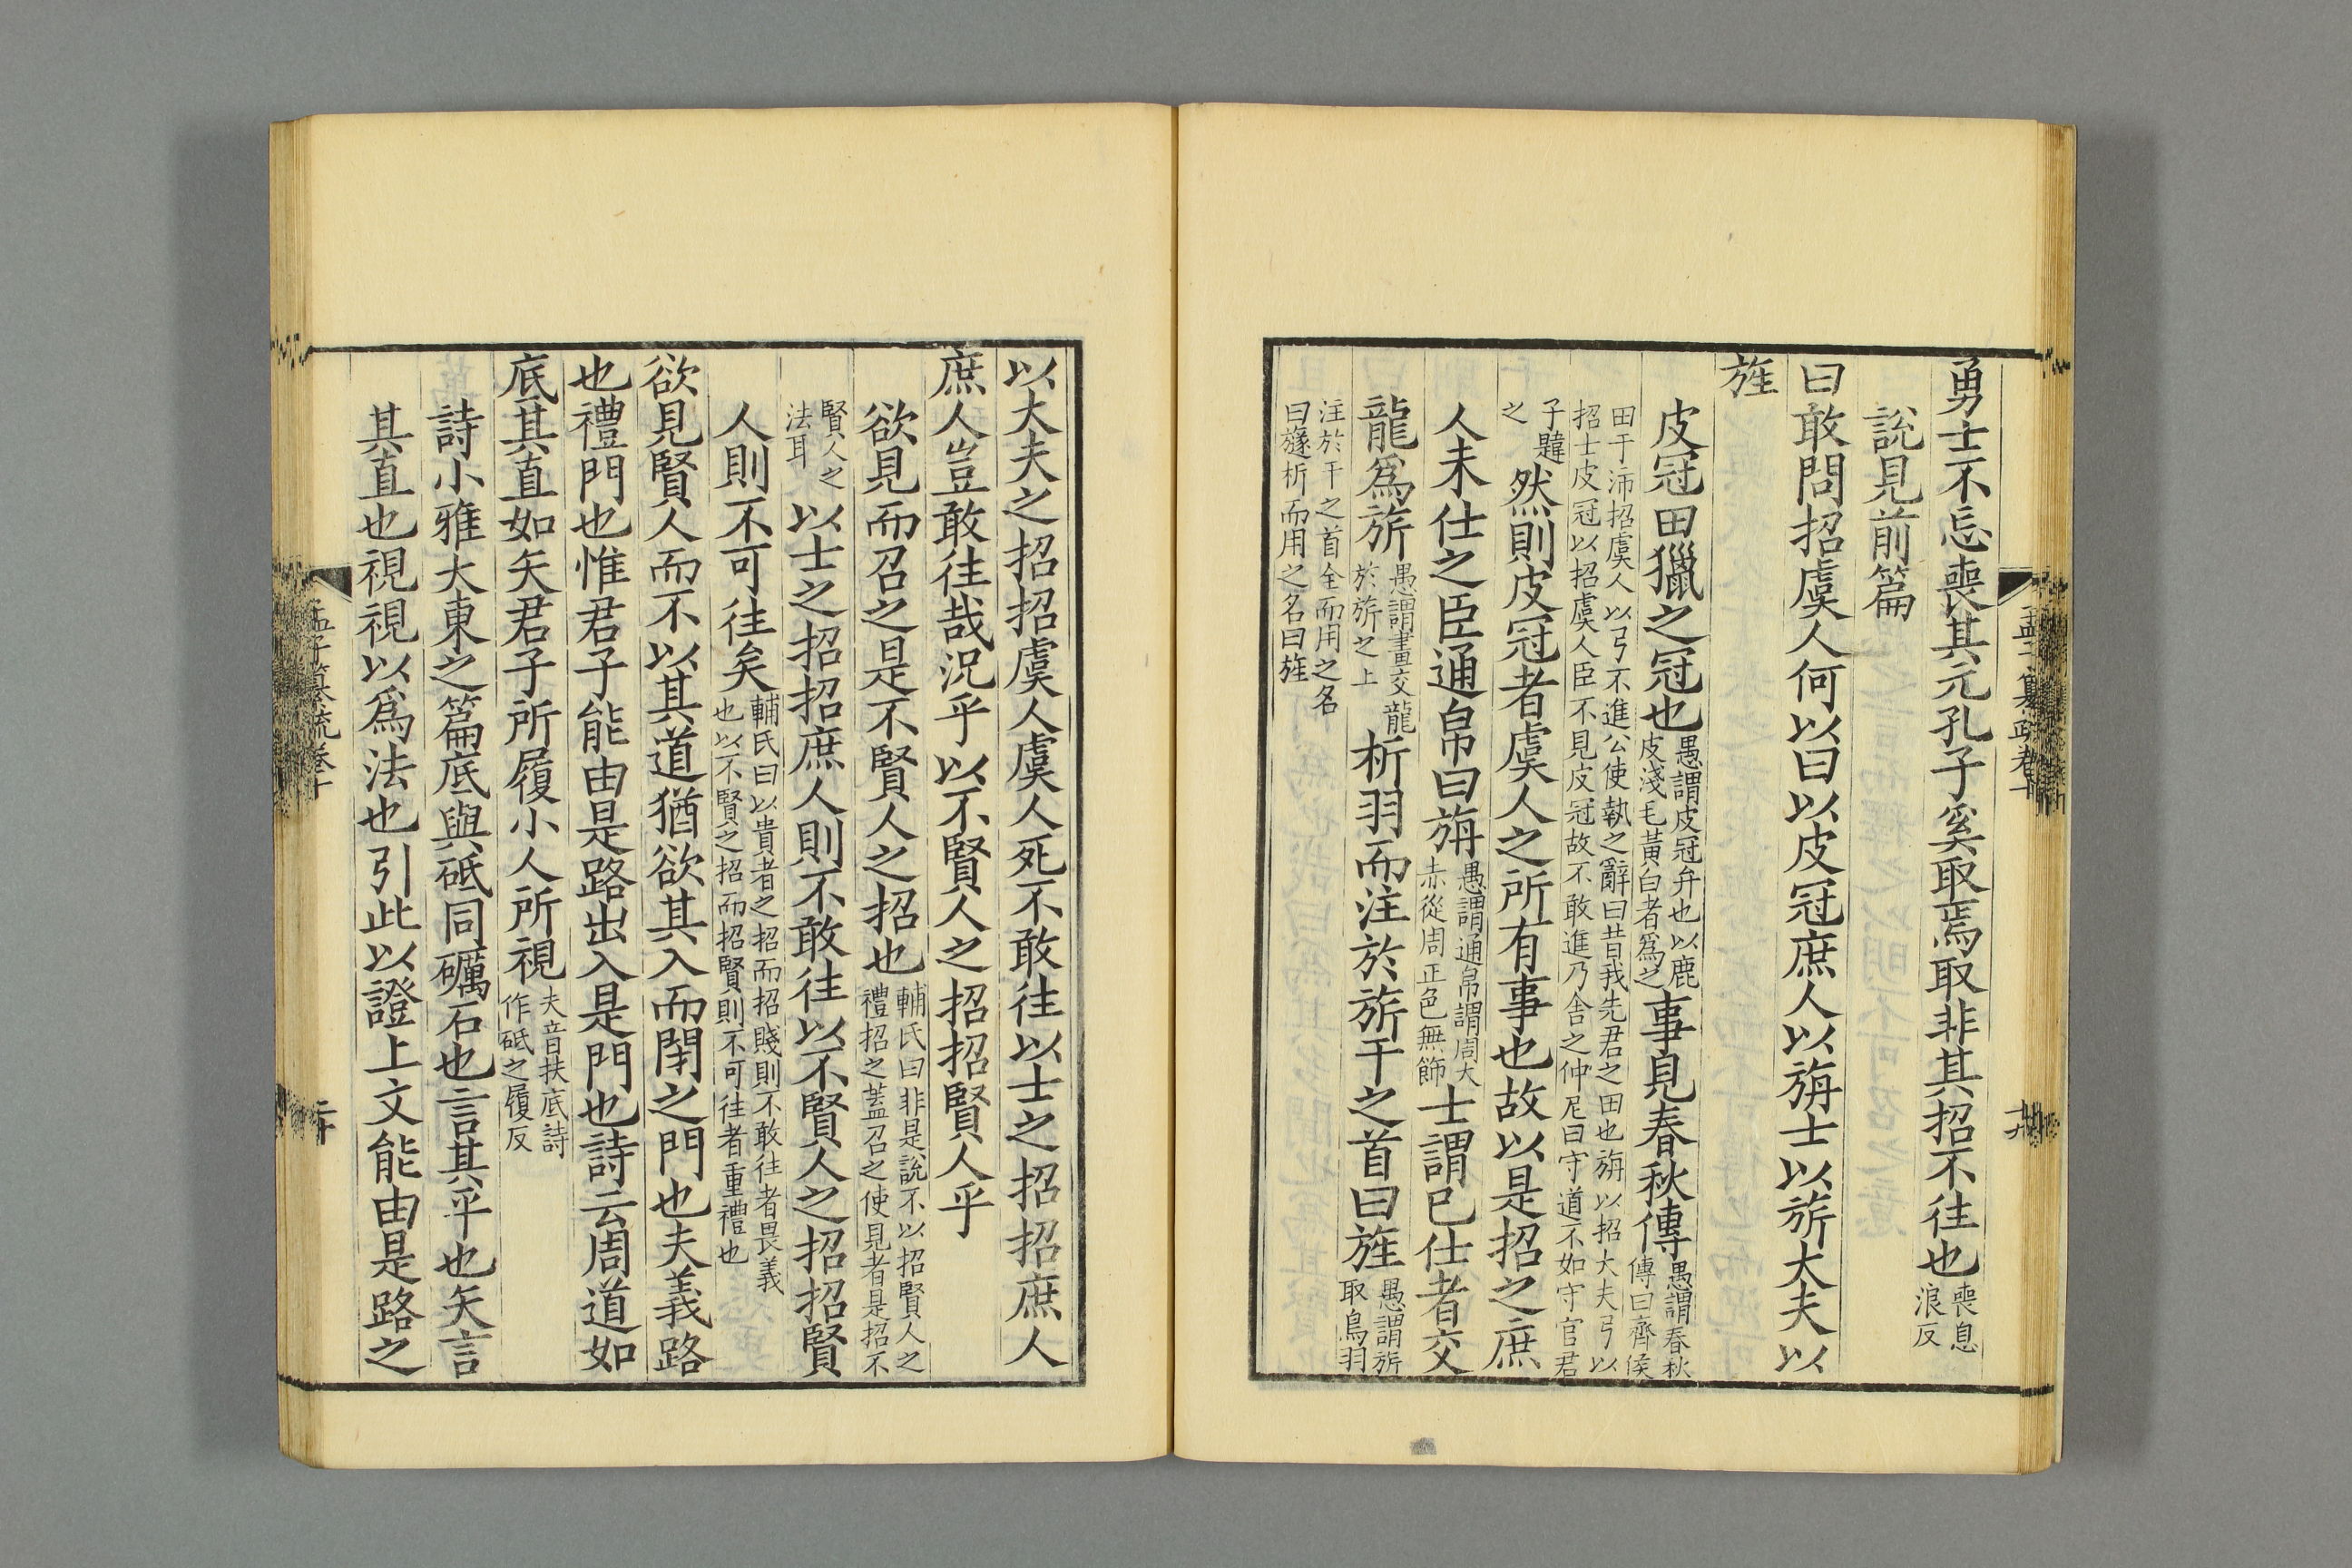 勇士不忘喪其元孔子奚取焉取非其招不往也喪息浪反
說見前篇
曰敢問招虞人何以曰以皮冠庶人以旃士以旂大夫以
旌
皮冠田獵之冠也愚謂皮冠弁也以鹿皮淺毛黃白者爲之事見春秋傳愚謂春秋傳曰齊侯
田于沛招虞人以弓不進公使執之辭曰昔我先君之田也旃以招大夫弓以招士皮冠以招虞人臣不見皮冠故不敢進乃舍之仲尼曰守道不如守官君
子韙之然則皮冠者虞人之所有事也故以是招之庶
人未仕之臣通帛曰旃愚謂通帛謂周大赤從周正色無飾士謂已仕者交
龍爲旂愚謂畫交龍於旂之上析羽而注於旂干之首曰旌愚謂旂取鳥羽
注於干之首全而用之名曰旞析而用之名曰旌
以大夫之招招虞人虞人死不敢往以士之招招庶人
庶人豈敢往哉況乎以不賢人之招招賢人乎
欲見而召之是不賢人之招也輔氏曰非是說不以招賢人之禮招之蓋召之使見者是招不
賢人之法耳以士之招招庶人則不敢往以不賢人之招招賢
人則不可往矣輔氏曰以貴者之招而招賤則不敢往者畏義也以不賢之招而招賢則不可往者重禮也
欲見賢人而不以其道猶欲其入而閉之門也夫義路
也禮門也惟君子能由是路出入是門也詩云周道如
底其直如矢君子所履小人所視夫音扶底詩作砥之履反
詩小雅大東之篇底與砥同礪石也言其平也矢言
其直也視視以爲法也引此以證上文能由是路之
孟子纂疏卷十
二十